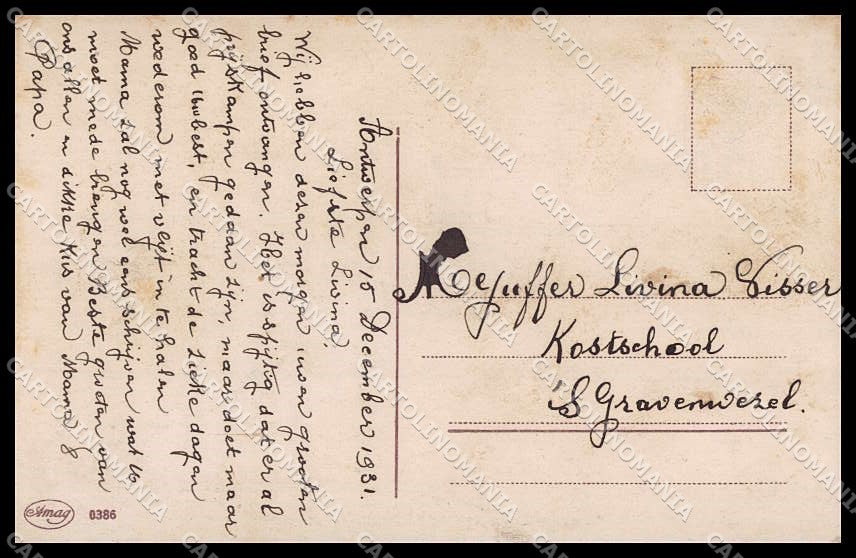 Antwerpen 15 December 1931.
Liefste Livina,
Wij hebben dezen morgen uwen grooten
brief ontvangen. Het is spijtig dat er al
prijskampen gedaan zijn, maar doet maar
goed uw best, en tracht de zieke dagen
wederom met vlijt in te halen
Mama zal nog wel eens schrijven wat U
moet mede brengen Beste groeten van
ons allen en dikke kus van Mama &
Papa.
Mejuffer Livina Visser
Kostschool
'S Gravenwezel.
Amag 0386
CARTOLINOMANIA